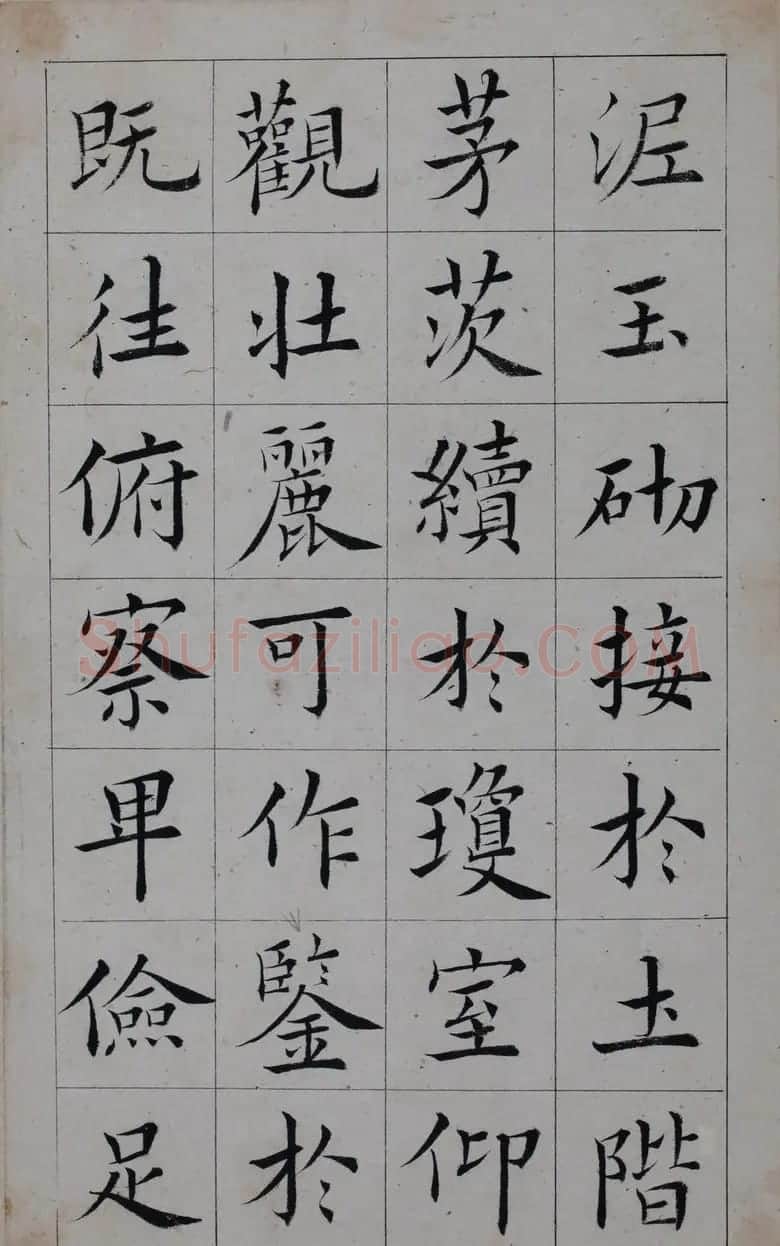 泥玉砌接於土階
茅茨續於瓊室仰
觀壯麗可作鑒於
既往俯察卑儉足
Shufaziliao.COM